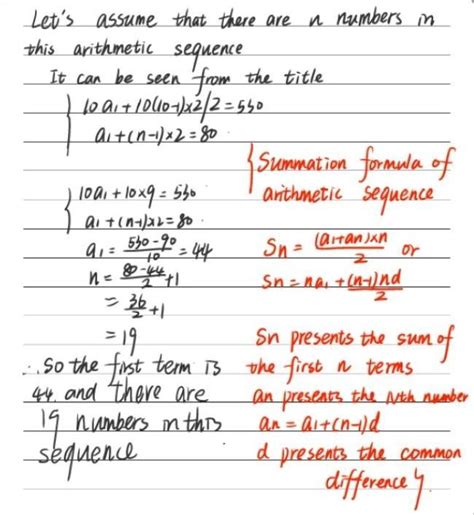 Let's assume that there are n numbers in
this arithmetic sequence
It can be seen from the title
10a₁+10(10-1)x2/2=530
a₁+(n-1)x2=80
10a₁+10x9=530
a₁+(n-1)x2=80
a₁= (530-90)/10 =44
n= (80-44)/2 +1
= 36/2 +1
=19
∴ So the first term is
44 and there are
19 numbers in this
sequence
Summation formula of
arithmetic sequence
Sn = (a₁+an)xn/2 or
Sn = na₁ + (n-1)nd/2
Sn presents the sum of
the first n terms
an presents the Nth number
an=a₁+(n-1)d
d presents the common
difference